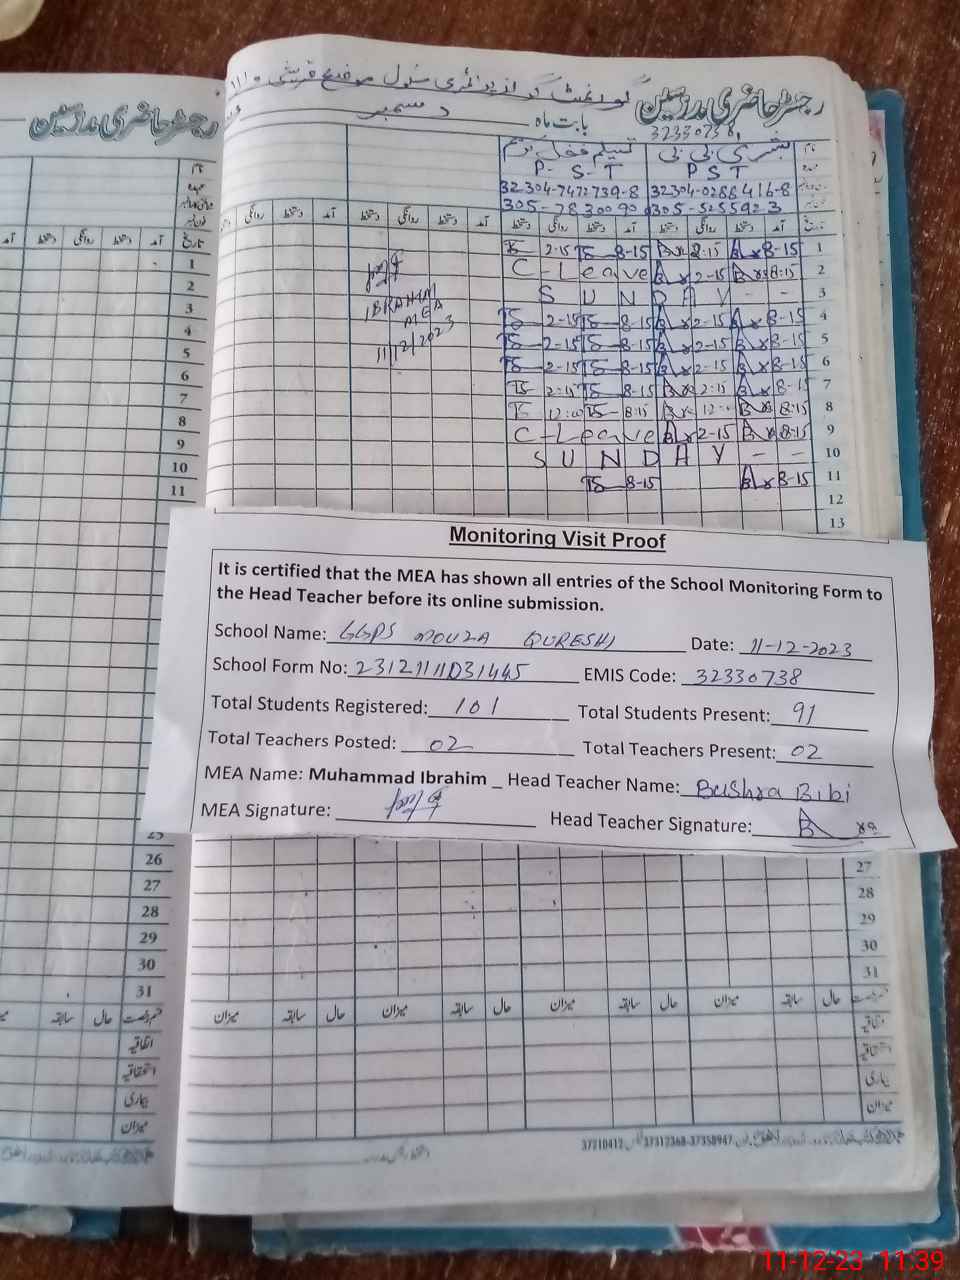 رجسٹر حاضری مدرسین
گورنمنٹ گرلز پرائمری سکول موضع قریشی
رجسٹر حاضری مدرسین
بابت ماہ دسمبر
32330738
تسلیم فضل بشریٰ بی بی
P-S-T PST
32304-7472739-8 32304-0288416-8
305-5255923
تاریخ آمد دستخط روانگی دستخط آمد دستخط روانگی دستخط
TS 2-15 TS 8-15 2:15 8-15 1
C-Leave 2-15 8:15 2
SUNDAY - - 3
TS 2-15 TS 8-15 2-15 8-15 4
TS 2-15 TS 8-15 2-15 8-15 5
TS 2-15 TS 8-15 2-15 8-15 6
TS 2:15 TS 8-15 2:15 8-15 7
TS 12:00 TS 8:15 8:15 8
C-Leave 2-15 8:15 9
SUNDAY - - 10
TS 8-15 8-15 11
12
13
IBRAHIM
MEA
11/12/2023
1
2
3
4
5
6
7
8
9
10
11
Monitoring Visit Proof
It is certified that the MEA has shown all entries of the School Monitoring Form to
the Head Teacher before its online submission.
School Name: GGPS MOUZA QURESHI Date: 11-12-2023
School Form No: 23121111D31445 EMIS Code: 32330738
Total Students Registered: 101 Total Students Present: 91
Total Teachers Posted: 02 Total Teachers Present: 02
MEA Name: Muhammad Ibrahim _ Head Teacher Name: Bushra Bibi
MEA Signature: Head Teacher Signature:
25
26
27
28
29
30
31
27
28
29
30
31
میزان سابقہ حال میزان سابقہ حال میزان سابقہ حال میزان سابقہ حال
اتفاقیہ
استحقاقیہ
بیماری
میزان
سابقہ حال
اتفاقیہ
استحقاقیہ
بیماری
میزان
37310412 37312368-37358947
11-12-23 11:39